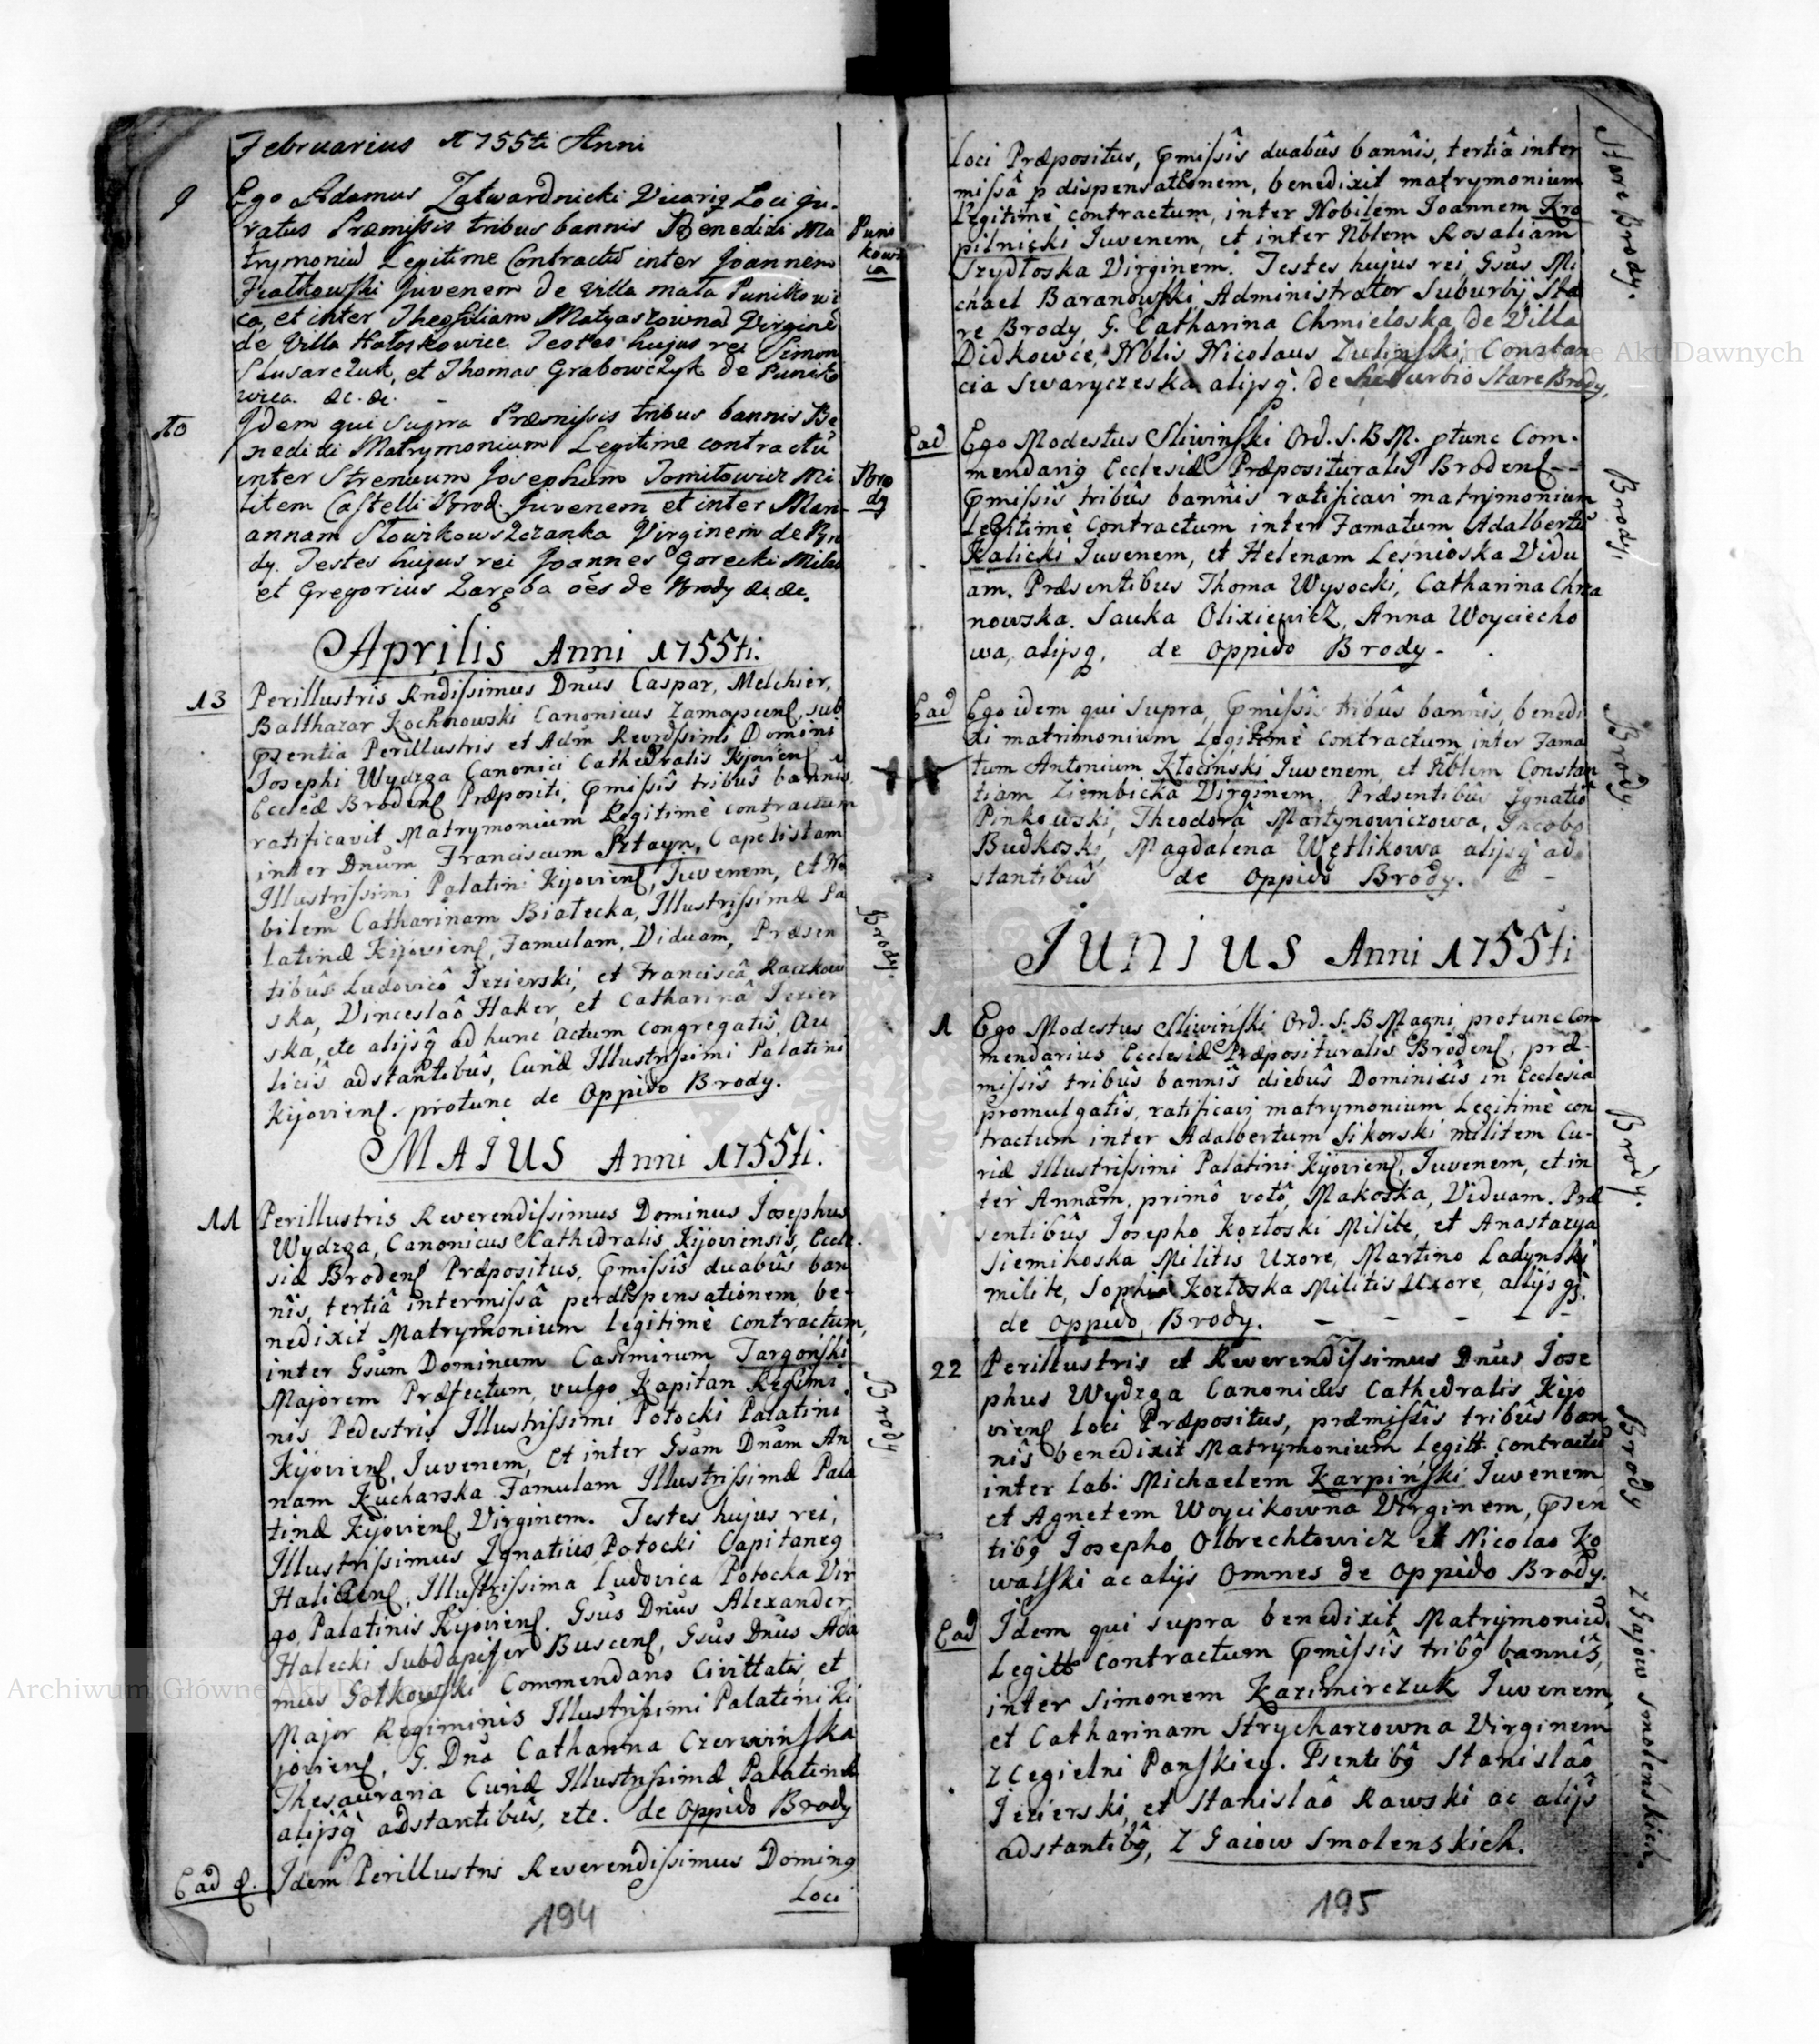 Februarius 1755ti Anni
9 Ego Adamus Zatwardnicki Vicariq Loci Ju-
ratus Præmissis tribus bannis Benedixi Ma
trymoniũ Legitime Contractũ inter Joannem
Fiałkowski Juvenem de villa mała Punikowi
ca, et inter Theofiliam Matyaszowna Virginẽ
de Villa Hołoskowice Testes hujus rei Simon
Slusarczuk, et Thomas Grabowczyk de Puniko
wica. &c. &c.
Puni
kowi
ca
10 Idem qui Supra Præmissis tribus bannis Be
nedixi Matrymonium Legitime contractũ
inter Strenuum Josephum Tomiłowicz Mi-
litem Castelli Brod. Juvenem et inter Mari-
annam Słowikowszczanka Virginem de Bro
dy. Testes hujus rei Joannes Gorecki Miles
et Gregorius Zaręba oẽs de Brody &c. &c.
Bro
dy
Aprilis Anni 1755ti.
13 Perillustris Rndissimus Dnus Caspar, Melchier,
Balthazar Kochnowski Canonicus Zamoscen, sub
psentia Perillustris et Adm Revrdssimi Domini
Josephi Wydzga Canonici Cathedralis Kijovien, et
Eccleæ Broden Præpositi, pmissîs tribûs bannis
ratificavit Matrymonium Legitimè contractum
inter Dnum Franciscum Sztayn, Capelistam
Illustrissimi Palatini Kijovien, Juvenem, et No
bilem Catharinam Białecka, Illustrissimæ Pa
latinæ Kijovien, Famulam, Viduam, Præsen
tibûs Ludovicô Jezierski, et Franciscâ Raczkow
ska, Vinceslaô Haker, et Catharinâ Jezier
ska, etc alijsq̂ ad hunc actum congregatîs, Au
licîs adstantibûs, Curiæ Illustrissimi Palatini
Kijovien. protunc de Oppido Brody.
Brody.
MAIUS Anni 1755ti.
11 Perillustris Reverendissimus Dominus Josephus
Wydzga, Canonicus Cathedralis Kijoviensis, Eccle-
siæ Broden Præpositus, pmissîs duabûs ban
nîs, tertiâ intermissâ perdispensationem, be-
nedixit Matrymonium legitimè contractum,
inter Gsum Dominum Casimirum Targonski
Majorem Præfectum, vulgo Kapitan Regimi
nis Pedestris Illustrissimi Potocki Palatini
Kijovien, Juvenem, et inter Gsam Dnam An
nam Kucharska Famulam Illustrissimæ Pala
tinæ Kijovien, Virginem. Testes hujus rei,
Illustrissimus Ignatius Potocki Capitaneq
Halicien, Illustrissima Ludovica Potocka Vir
go, Palatinis Kijovien. Gsus Dnus Alexander
Halecki Subdapifer Buscen, Gsus Dnus Ada
mus Gołkowski Commendans Civittatis, et
Major Regiminis Illustrissimi Palatini Ki
jovien, G. Dna Catharina Czerwińska
Thesauraria Curiæ Illustrissimæ Palatinæ
alijsq̂ adstantibûs, etc. de Oppido Brody
Brody.
Ead. Idem Perillustris Reverendissimus Dominq
Loci
194
Loci Præpositus, pmissîs duabûs bannîs, tertiâ inter
missâ p dispensationem, benedixit matrymonium
Legitimè contractum, inter Nobilem Joannem Kro
pilnicki Juvenem, et inter Nblem Rosaliam
Szydłoska Virginem. Testes hujus rei, Gsus Mi
chael Baranowski Administrator Suburbij Sta
re Brody, G. Catharina Chmieloska de Villa
Didkowce, Nblis Nicolaus Zulinski, Constan
cia Swaryczeska alijsq̂. de Suburbio Stare Brody.
Stare Brody.
Ead Ego Modestus Sliwinski Ord. S. B M. ptunc Com-
mendariq Ecclesiæ Præposituralis Broden --
pmissîs tribûs bannîs ratificavi matrymonium
Legitimè contractum inter Famatum Adalbertũ
Kalicki Juvenem, et Helenam Lesnioska Vidu
am. Præsentibus Thoma Wysocki, Catharina Chrza
nowska. Sauka Olixiewicz, Anna Woyciecho
wa, alijsq, de Oppido Brody -
Brody.
Ead Ego idem qui supra, pmissîs tribûs bannîs, benedi
xi matrimonium Legitimè contractum inter Fama
tum Antonium Kłocinski Juvenem, et Nblem Constan
tiam Ziembicka Virginem. Præsentibûs Ignatio
Pinkowski, Theodorâ Martynowiczowa, Jacobo
Budkoski, Magdalena Wętlikowa alijsq̂ ad
stantibûs de Oppido Brody.
Brody.
JUNIUS Anni 1755ti
1 Ego Modestus Sliwiński Ord. S. B Magni protunc Com
mendarius Ecclesiæ Præposituralis Broden, præ-
missîs tribûs bannîs diebûs Dominicîs in Ecclesia
promulgatîs, ratificavi matrymonium Legitimè con
tractum inter Adalbertum Sikorski militem Cu-
riæ Illustrissimi Palatini Kijovien, Juvenem, et in
ter Annam, primô votô, Makoska, Viduam. Præ
sentibûs Josepho Kozłoski Milite, et Anastazya
Siemikoska Militis Uxore, Martino Ladynski
milite, Sophia Kozłoska Militis Uxore, alijsq̂.
de Oppido, Brody. - - - - -
Brody.
22 Perillustris et Reverendissimus Dnus Jose
phus Wydzga Canonicus Cathedralis Kijo
vien Loci Præpositus, præmissîs tribûs ban
nîs benedixit Matrymonium Legitt. contractũ
inter Lab. Michaelem Karpiński Juvenem
et Agnetem Woycikowna Virginem, psen
tibq Josepho Olbrechtowicz et Nicolao Ko
walski ac alijs Omnes de Oppido Brody.
Brody
Ead Idem qui supra benedixit Matrymoniũ
Legitt contractum pmissîs tribq̂ bannîs,
inter Simonem Kazimirczuk Juvenem,
et Catharinam Strycharzowna Virginem
z Cegielni Panskiey. Psentibq̂ Stanislaô
Jezierski, et Stanislaô Rawski ac alijs
adstantibq̂, z Gaiow Smolenskich.
z Gajow Smolenskich.
195
Archiwum Główne Akt Dawnych